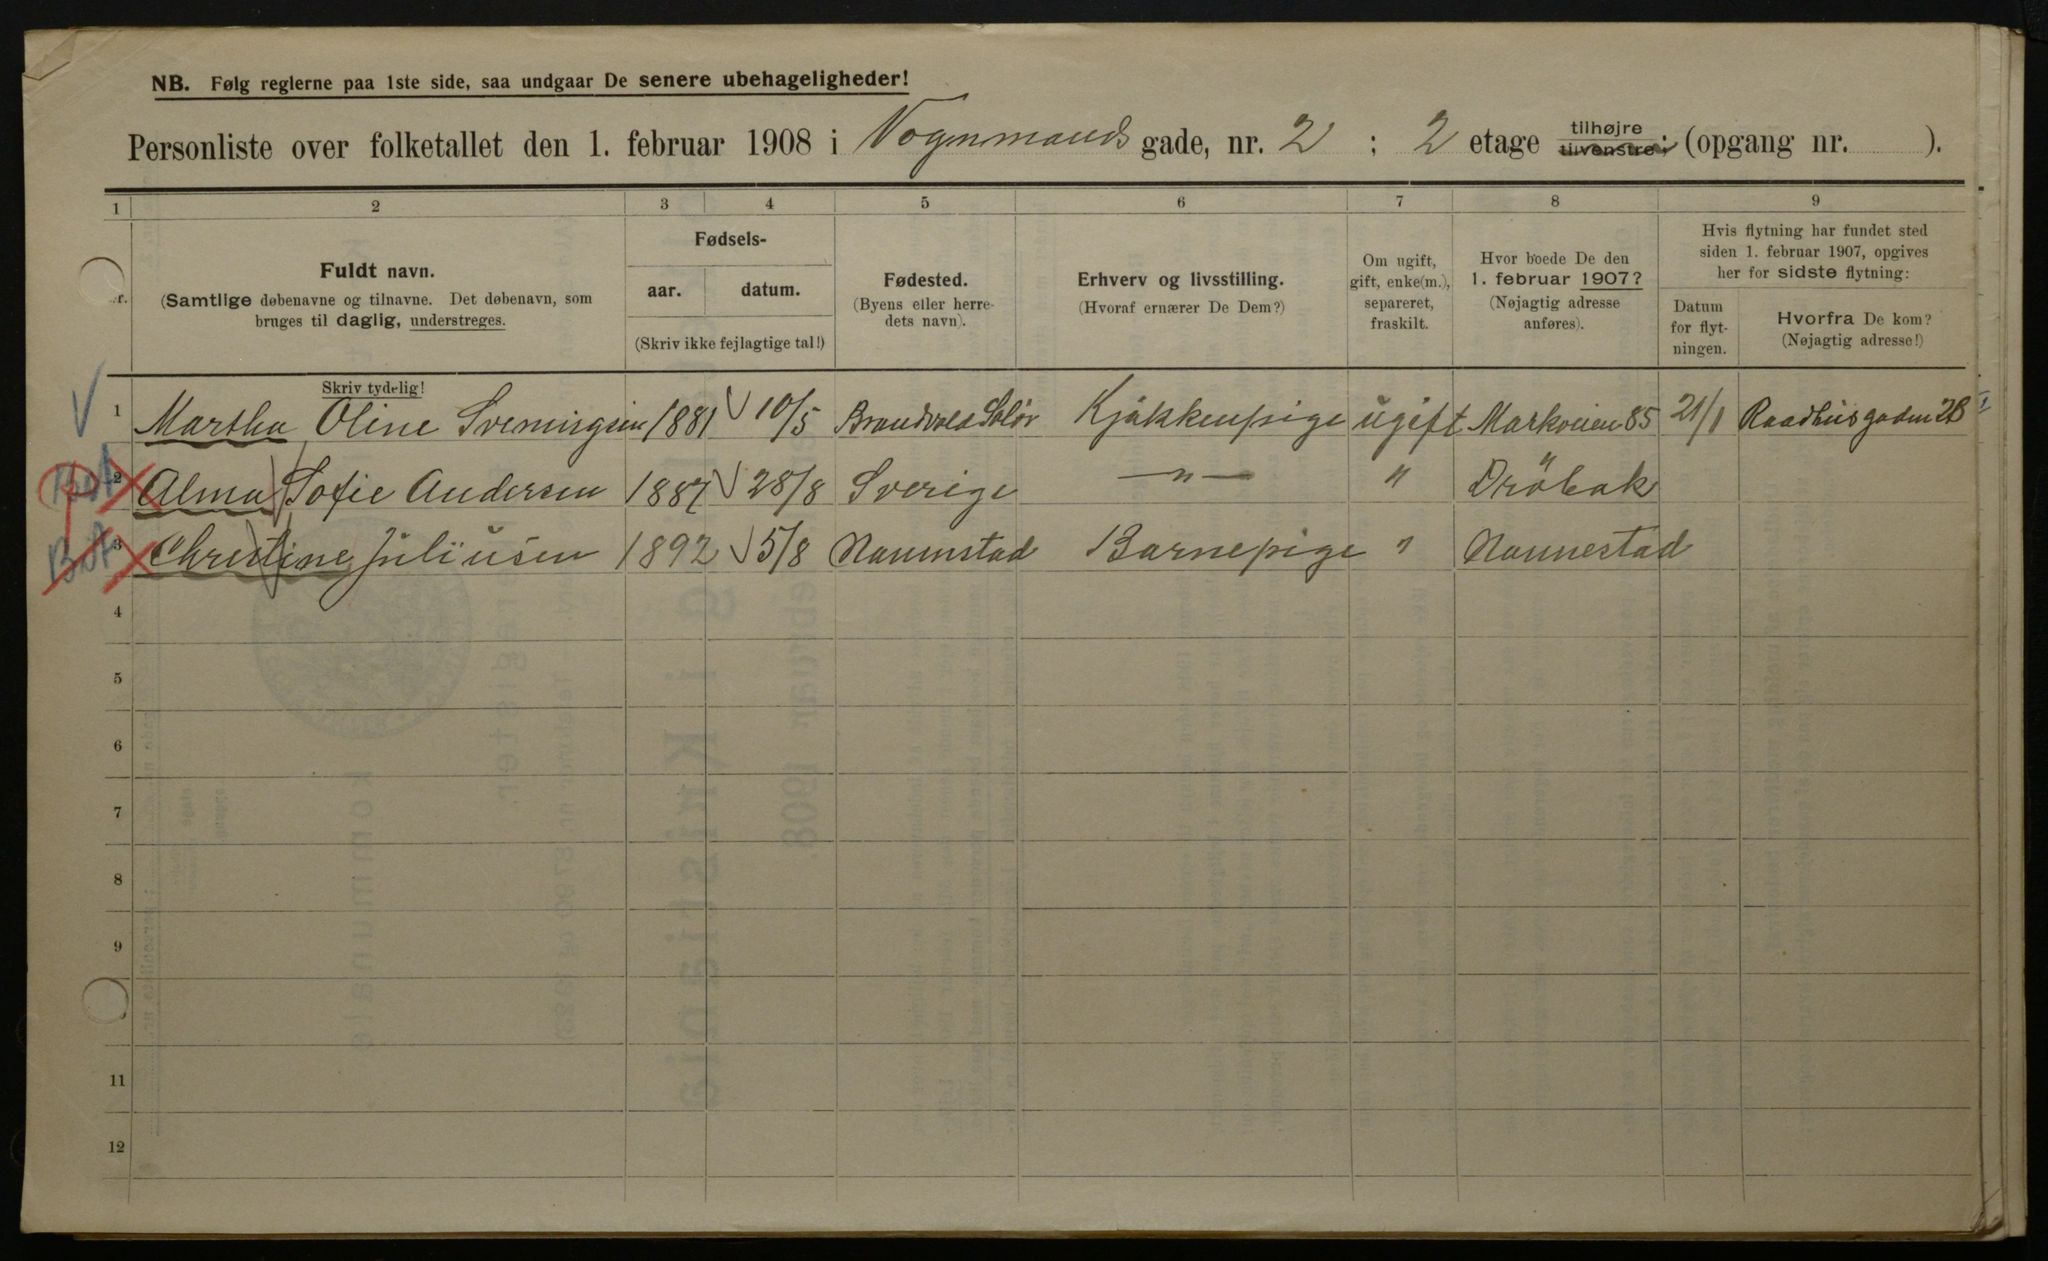 NB. Følg reglerne paa 1ste side, saa undgaar De senere ubehageligheder!
Personliste over folketallet den 1. februar 1908 i Vognmands gade, nr. 2 ; 2 etage tilhøjre tilvenstre; (opgang nr. ).
1 2 3 4 5 6 7 8 9
Fuldt navn.
(Samtlige døbenavne og tilnavne. Det døbenavn, som
bruges til daglig, understreges.
Skriv tydelig!
Fødsels-
aar. datum.
(Skriv ikke fejlagtige tal!)
Fødested.
(Byens eller herre-
dets navn).
Erhverv og livsstilling.
(Hvoraf ernærer De Dem?)
Om ugift,
gift, enke(m.),
separeret,
fraskilt.
Hvor boede De den
1. februar 1907?
(Nøjagtig adresse
anføres).
Hvis flytning har fundet sted
siden 1. februar 1907, opgives
her for sidste flytning:
Datum
for flyt-
ningen.
Hvorfra De kom?
(Nøjagtig adresse!)
1 Martha Oline Svenningsen 1881 10/5 Brandvold Solør Kjøkkenpige ugift Markveien 85 21/1 Raadhusgaden 28
2 Alma Sofie Andersen 1887 28/8 Sverige —"— " Dröbak
3 Christine Juliusen 1892 5/8 Nannestad Barnepige " Nannestad
4
5
6
7
8
9
11
12